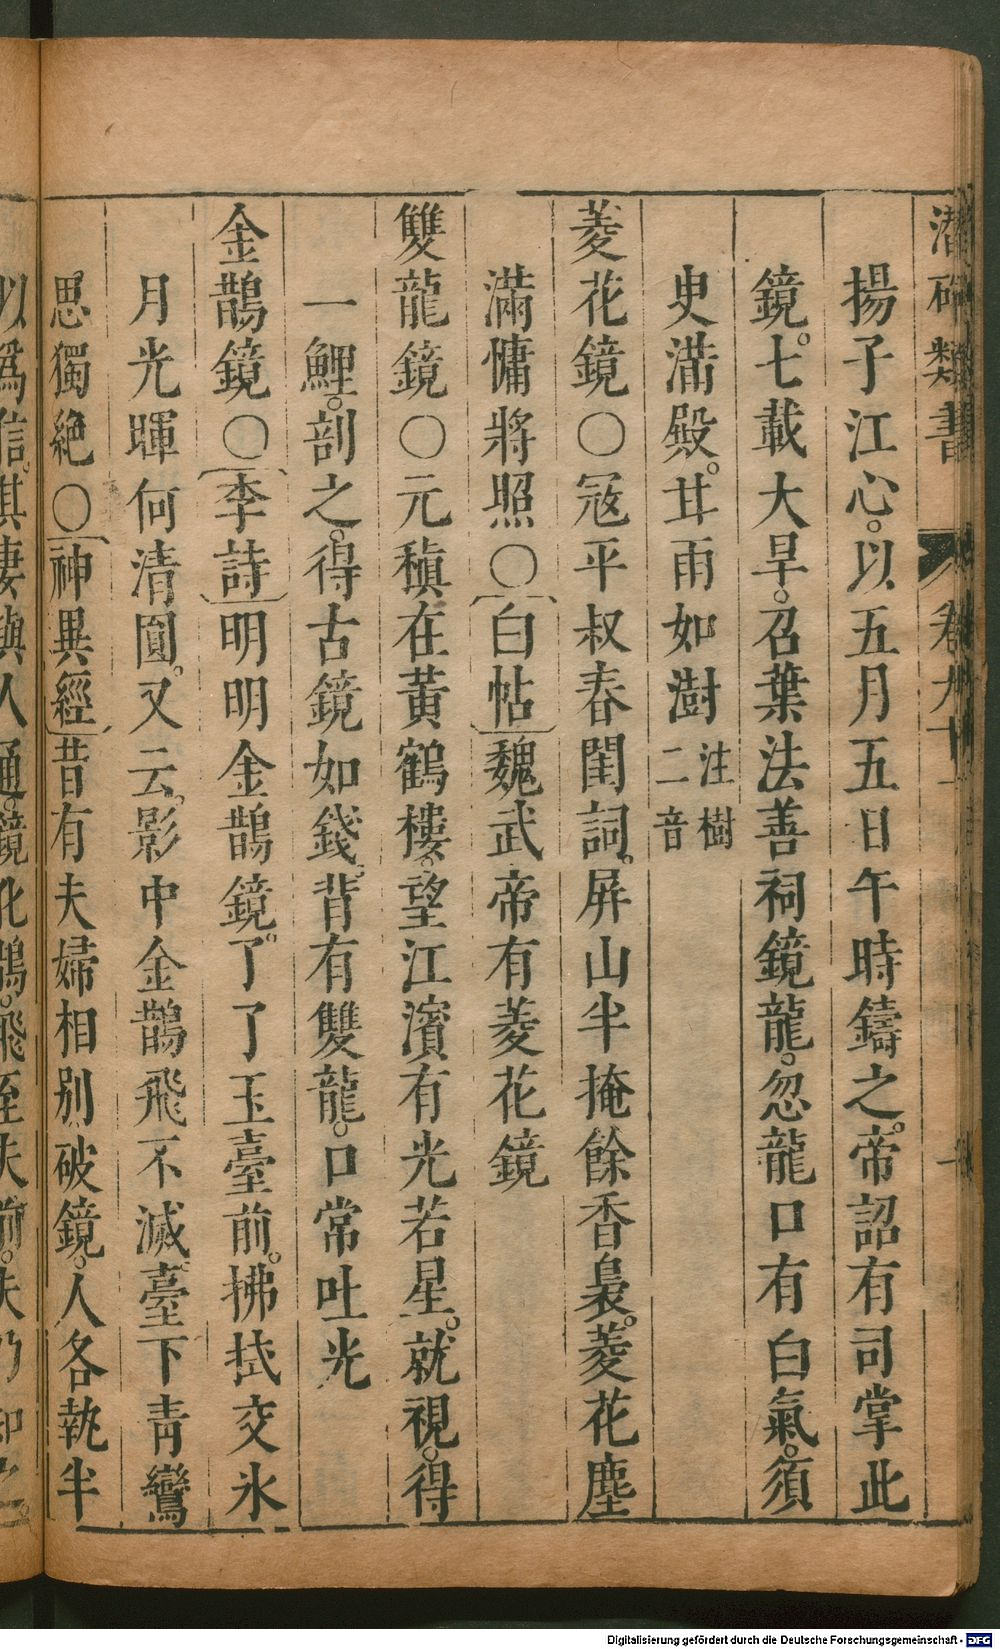 潛確類書 卷九十
揚子江心。以五月五日午時鑄之。帝詔有司掌此
鏡。七載大旱。召葉法善祠鏡龍。忽龍口有白氣。須
臾滿殿。甘雨如澍注樹二音
菱花鏡○冦平叔春閨詞。屏山半掩餘香裊。菱花塵
滿慵將照○白帖魏武帝有菱花鏡
雙龍鏡○元稹在黃鶴樓。望江濱有光若星。就視。得
一鯉。剖之。得古鏡如錢。背有雙龍。口常吐光
金鵲鏡○李詩明明金鵲鏡。了了玉臺前。拂拭交氷
月光暉何清圓。又云。影中金鵲飛不滅。臺下青鸞
思獨絶○神異經昔有夫婦相別。破鏡。人各執半
以爲信。其妻與人通。鏡化鵲。飛至夫前。夫乃知之。
Digitalisierung gefördert durch die Deutsche Forschungsgemeinschaft - DFG